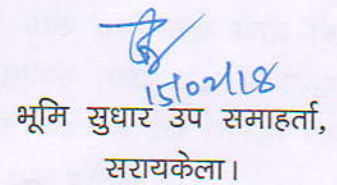 15/02/18
भूमि सुधार उप समाहर्ता,
सरायकेला।